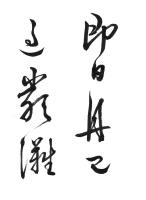 即日舟已
過嚴灘